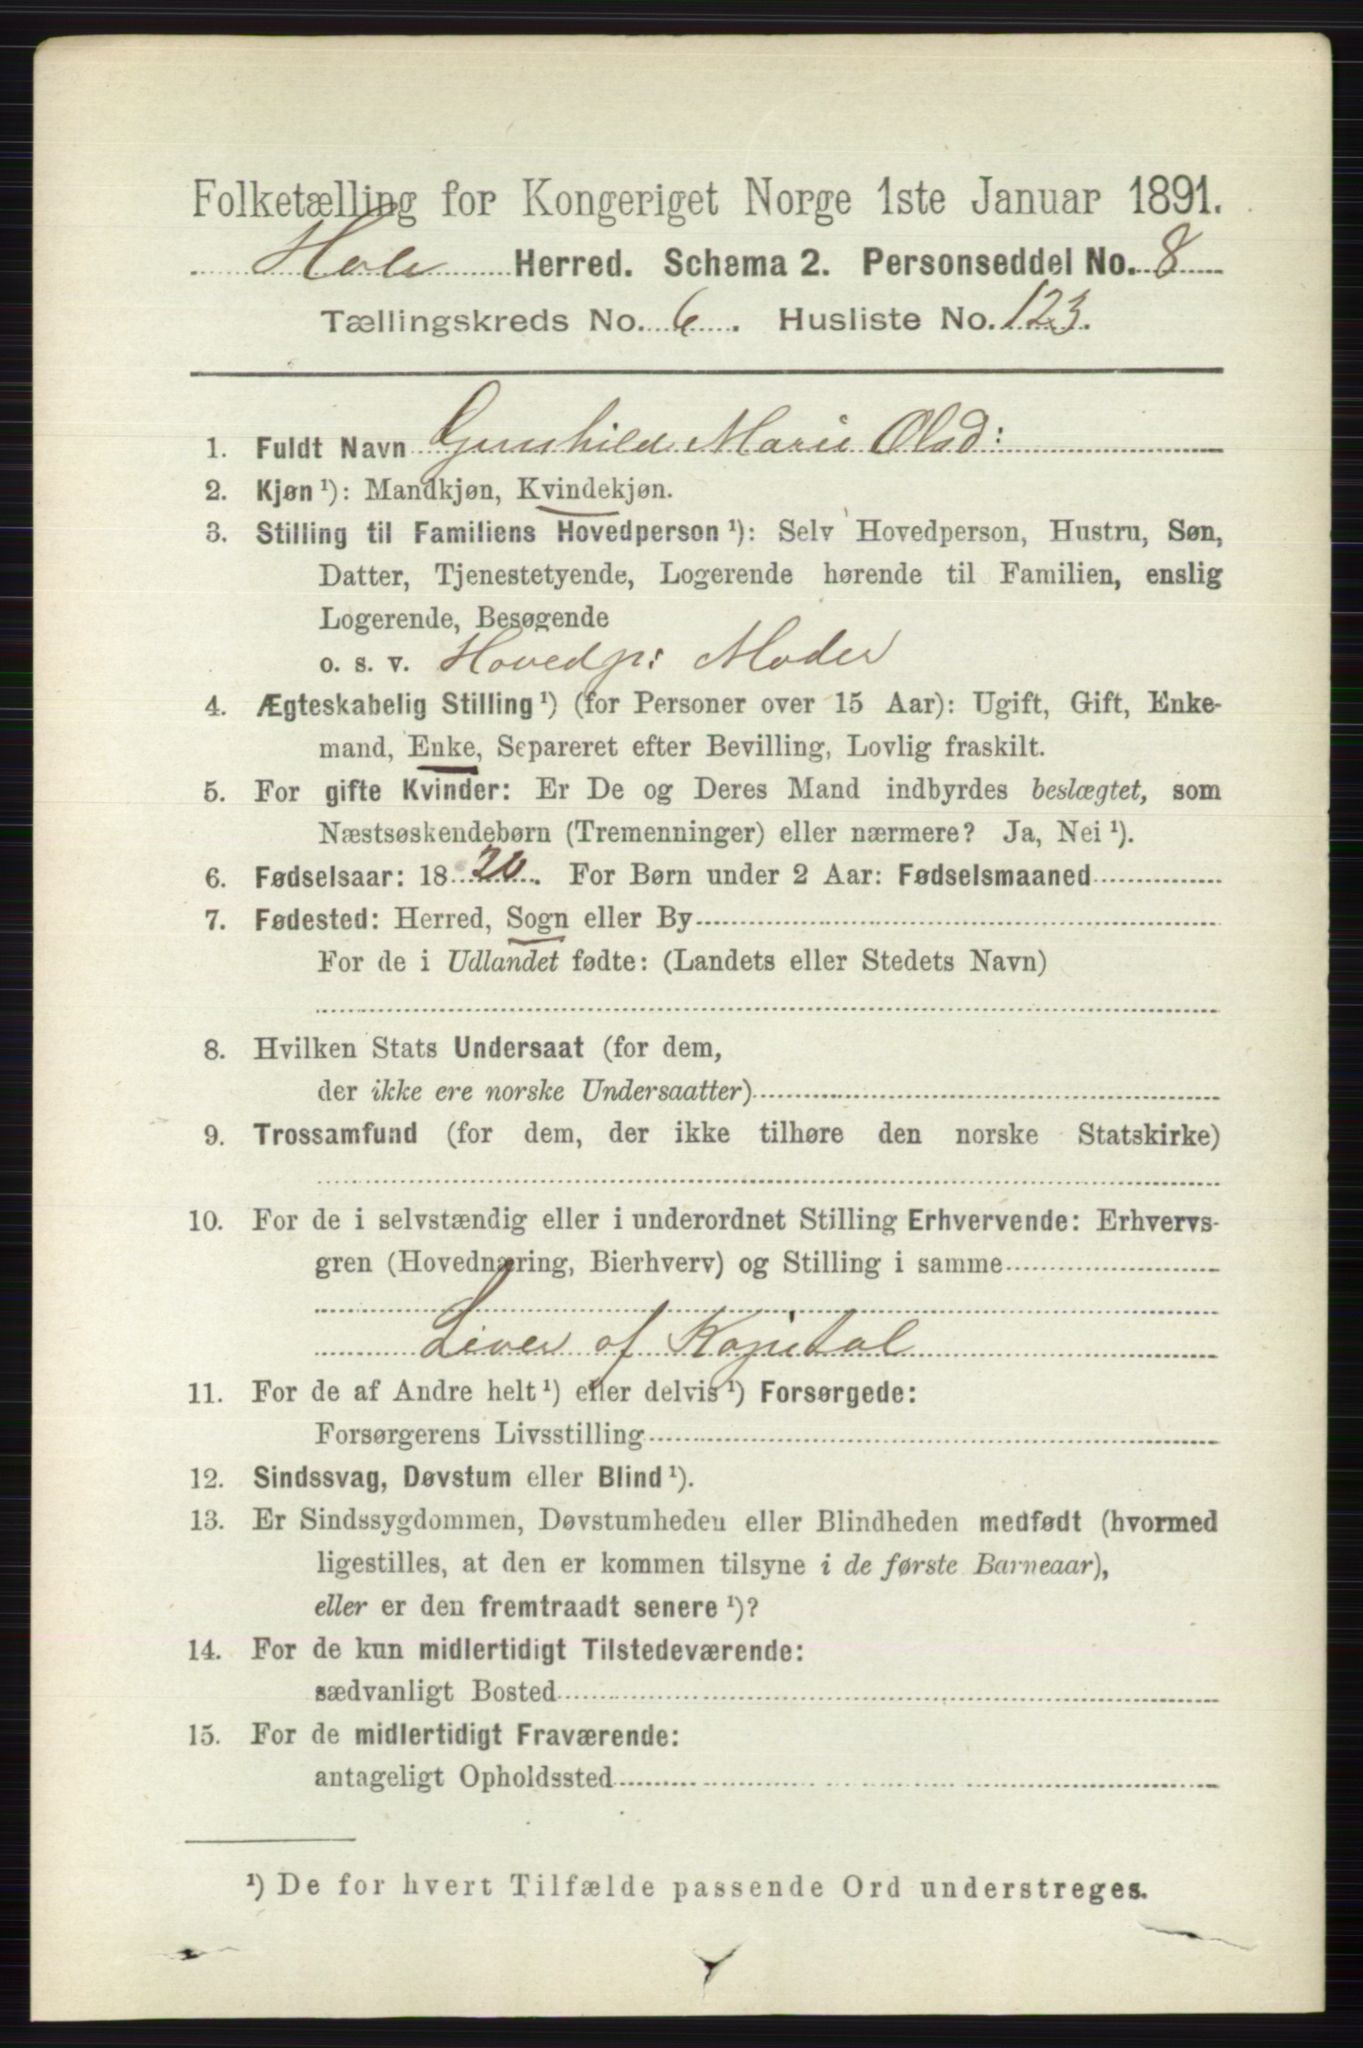 Folketælling for Kongeriget Norge 1ste Januar 1891.
Hole Herred. Schema 2. Personseddel No. 8
Tællingskreds No. 6. Husliste No. 123.
1. Fuldt Navn Gunhild Marie Olsd:
2. Kjøn¹): Mandkjøn, Kvindekjøn.
3. Stilling til Familiens Hovedperson¹): Selv Hovedperson, Hustru, Søn,
Datter, Tjenestetyende, Logerende hørende til Familien, enslig
Logerende, Besøgende
o. s. v. Hovedp: Moder
4. Ægteskabelig Stilling¹) (for Personer over 15 Aar): Ugift, Gift, Enke-
mand, Enke, Separeret efter Bevilling, Lovlig fraskilt.
5. For gifte Kvinder: Er De og Deres Mand indbyrdes beslægtet, som
Næstsøskendebørn (Tremenninger) eller nærmere? Ja, Nei¹).
6. Fødselsaar: 1820. For Børn under 2 Aar: Fødselsmaaned
7. Fødested: Herred, Sogn eller By
For de i Udlandet fødte: (Landets eller Stedets Navn)
8. Hvilken Stats Undersaat (for dem,
der ikke ere norske Undersaatter)
9. Trossamfund (for dem, der ikke tilhøre den norske Statskirke)
10. For de i selvstændig eller i underordnet Stilling Erhvervende: Erhvervs-
gren (Hovednæring, Bierhverv) og Stilling i samme
Lever af Kapital
11. For de af Andre helt¹) eller delvis¹) Forsørgede:
Forsørgerens Livsstilling
12. Sindssvag, Døvstum eller Blind¹).
13. Er Sindssygdommen, Døvstumheden eller Blindheden medfødt (hvormed
ligestilles, at den er kommen tilsyne i de første Barneaar),
eller er den fremtraadt senere¹)?
14. For de kun midlertidigt Tilstedeværende:
sædvanligt Bosted
15. For de midlertidigt Fraværende:
antageligt Opholdssted
¹) De for hvert Tilfælde passende Ord understreges.